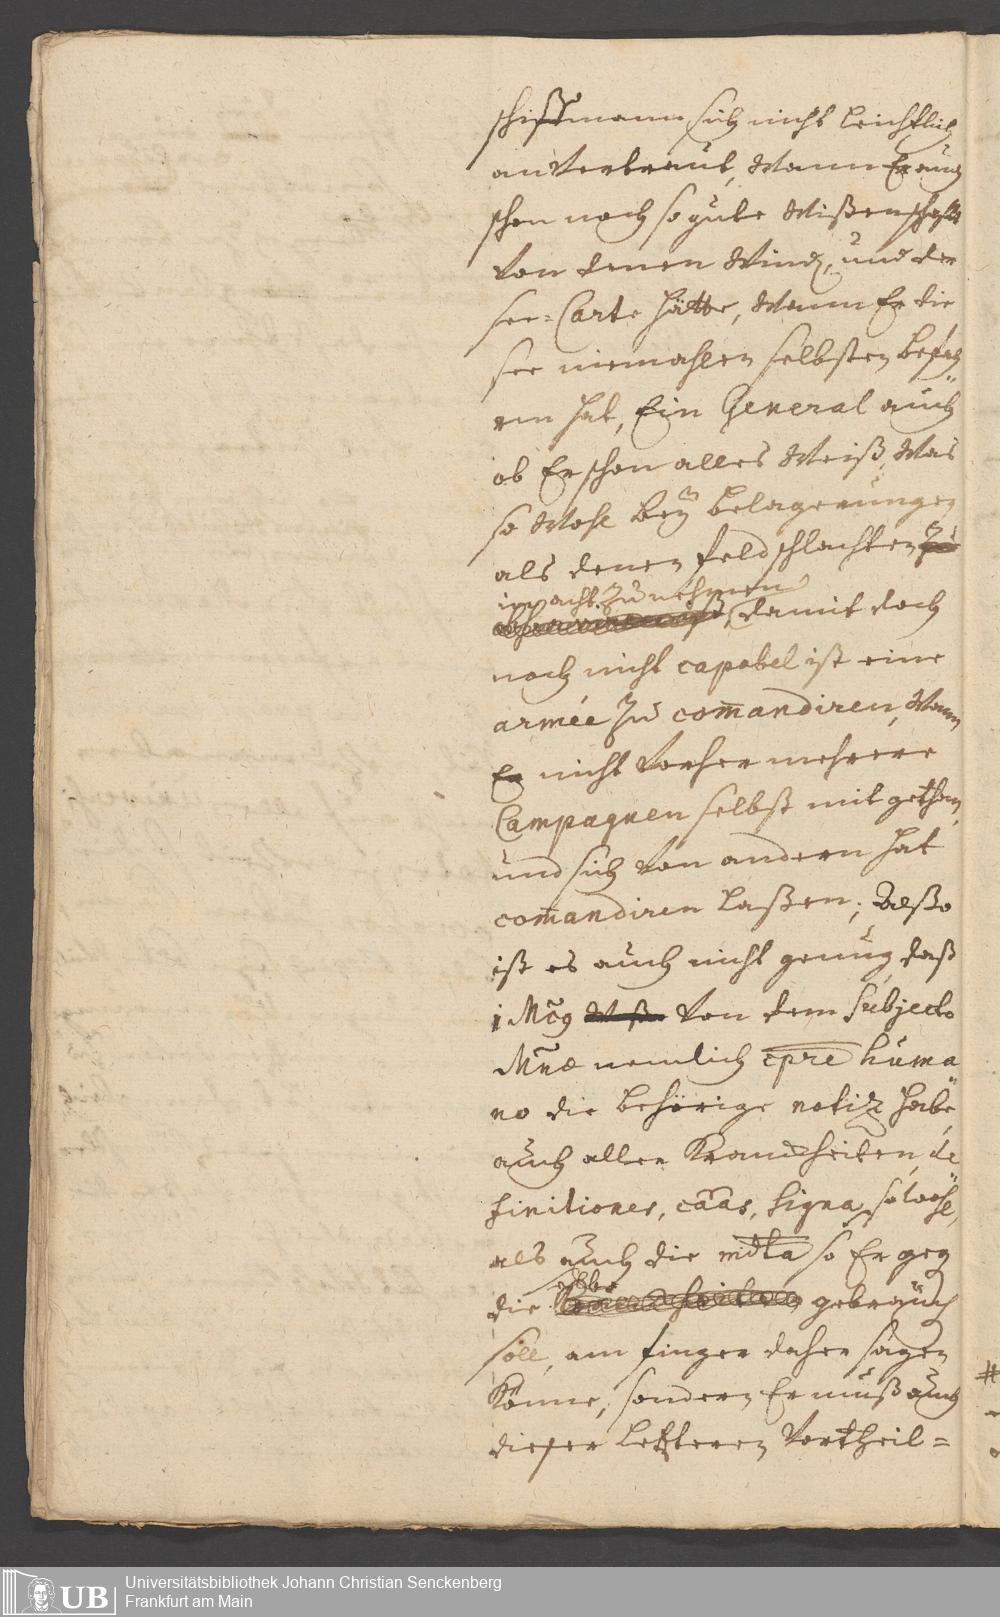 schiffmann sich nicht leichtlich
anvertraut, Wann Er auch
schon noch so gute Wißenschafft
von denen Wind, und der
see-Carte hätte, Wann Er die
see niemahlen selbsten befah
ren hat, Ein General auch
ob Er schon alles Weiß, Was
so Wohl beÿ belagerungen
als denen feldschlachten zu
in acht zu nehmen
, damit doch
noch nicht capabel ist eine
armée zu com̄andiren, Wann
Er nicht vorher mehrere
Campagnen selbst mit gethan,
und sich von andern hat
com̄andiren laßen; Alßo
ist es auch nicht genug, daß
1 Mcg von dem Subjecto
Mnæ nemlich cpre huma
no die behörige notiz habe,
auch aller Kranckheiten, de
finitiones, cāas, signa, sowohl,
als auch die mdta so Er geg
die gebrauch
soll, am finger daher sagen
Könne, sondern Er muß auch
dießer letzteren Vortheil=
Universitätsbibliothek Johann Christian Senckenberg
Frankfurt am Main
UB